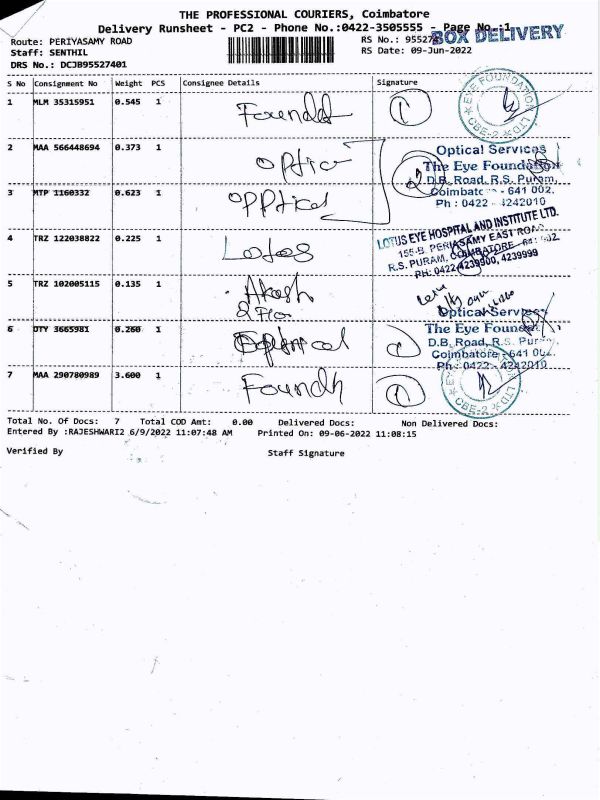 THE PROFESSIONAL COURIERS, Coimbatore
Delivery Runsheet - PC2 - Phone No.:0422-3505555 - Page No.:1
BOX DELIVERY
Route: PERIYASAMY ROAD
RS No.: 95527
Staff: SENTHIL
RS Date: 09-Jun-2022
DRS No.: DCJB95527401
S No Consignment No Weight PCS Consignee Details Signature
1 MLM 35315951 0.545 1
EYE FOUNDATION LTD
CBE-2
2 MAA 566448694 0.373 1
Optical Services
The Eye Foundation
D.B. Road, R.S. Puram,
3 MTP 1160332 0.623 1 Opptical
Coimbatore - 641 002.
Ph : 0422 - 4242010
4 TRZ 122038822 0.225 1 Lotus
LOTUS EYE HOSPITAL AND INSTITUTE LTD.
155-B, PERIASAMY EAST ROAD
R.S. PURAM, COIMBATORE - 641 002.
PH: 0422 4239900, 4239999
5 TRZ 102005115 0.135 1 Akash
6 DTY 3665981 0.260 1
Optical Services
The Eye Foundation
D.B. Road, R.S. Puram
Coimbatore - 641 002.
Ph : 0422 - 4242010
7 MAA 290780989 3.600 1
CBE-2 LTD
Total No. Of Docs: 7 Total COD Amt: 0.00 Delivered Docs: Non Delivered Docs:
Entered By :RAJESHWARI2 6/9/2022 11:07:48 AM Printed On: 09-06-2022 11:08:15
Verified By Staff Signature